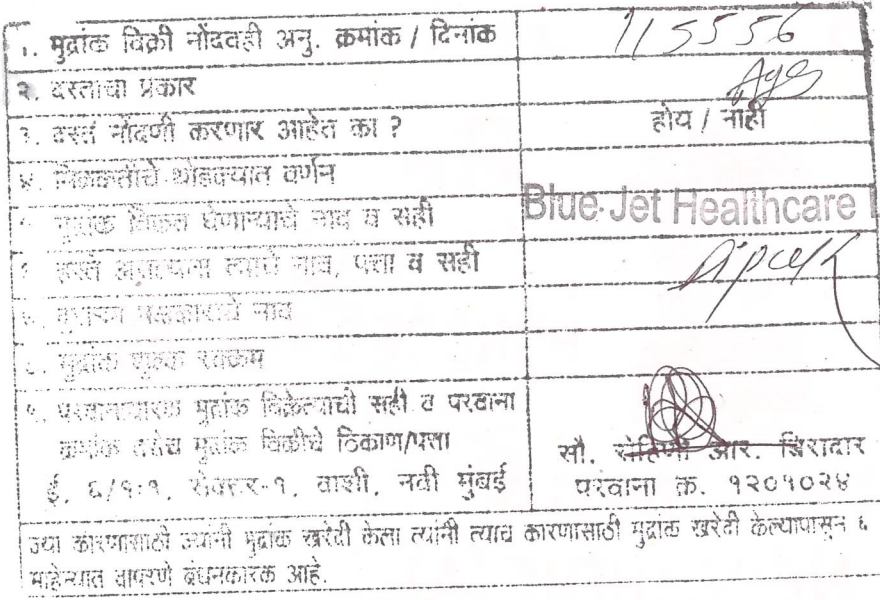 १. मुद्रांक विक्री नोंदवही अनु. क्रमांक / दिनांक 115556
२. दस्ताचा प्रकार
३. दस्त नोंदणी करणार आहेत का ? होय / नाही
४. मिळकतीचे थोडक्यात वर्णन
मुद्रांक विकत घेणाऱ्याचे नाव व सही Blue Jet Healthcare
हस्ते असल्यास त्याचे नाव, पत्ता व सही
७. दुसऱ्या पक्षकाराचे नाव
८. मुद्रांक शुल्क रक्कम
९. परवानाधारक मुद्रांक विक्रेत्याची सही व परवाना
क्रमांक तसेच मुद्रांक विक्रीचे ठिकाण/पत्ता
सौ. रोहिणी आर. बिरादार
ई. ६/१:१, सेक्टर-१, वाशी, नवी मुंबई परवाना क्र. १२०१०२४
ज्या कारणासाठी ज्यांनी मुद्रांक खरेदी केला त्यांनी त्याच कारणासाठी मुद्रांक खरेदी केल्यापासून ६
महिन्यात वापरणे बंधनकारक आहे.